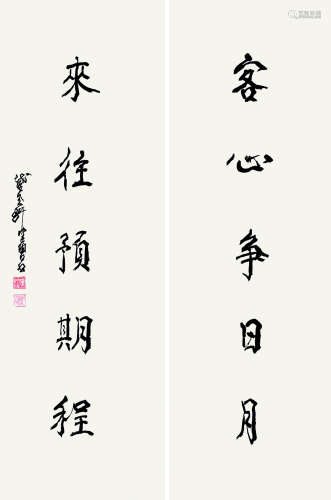 客心争日月
來往預期程